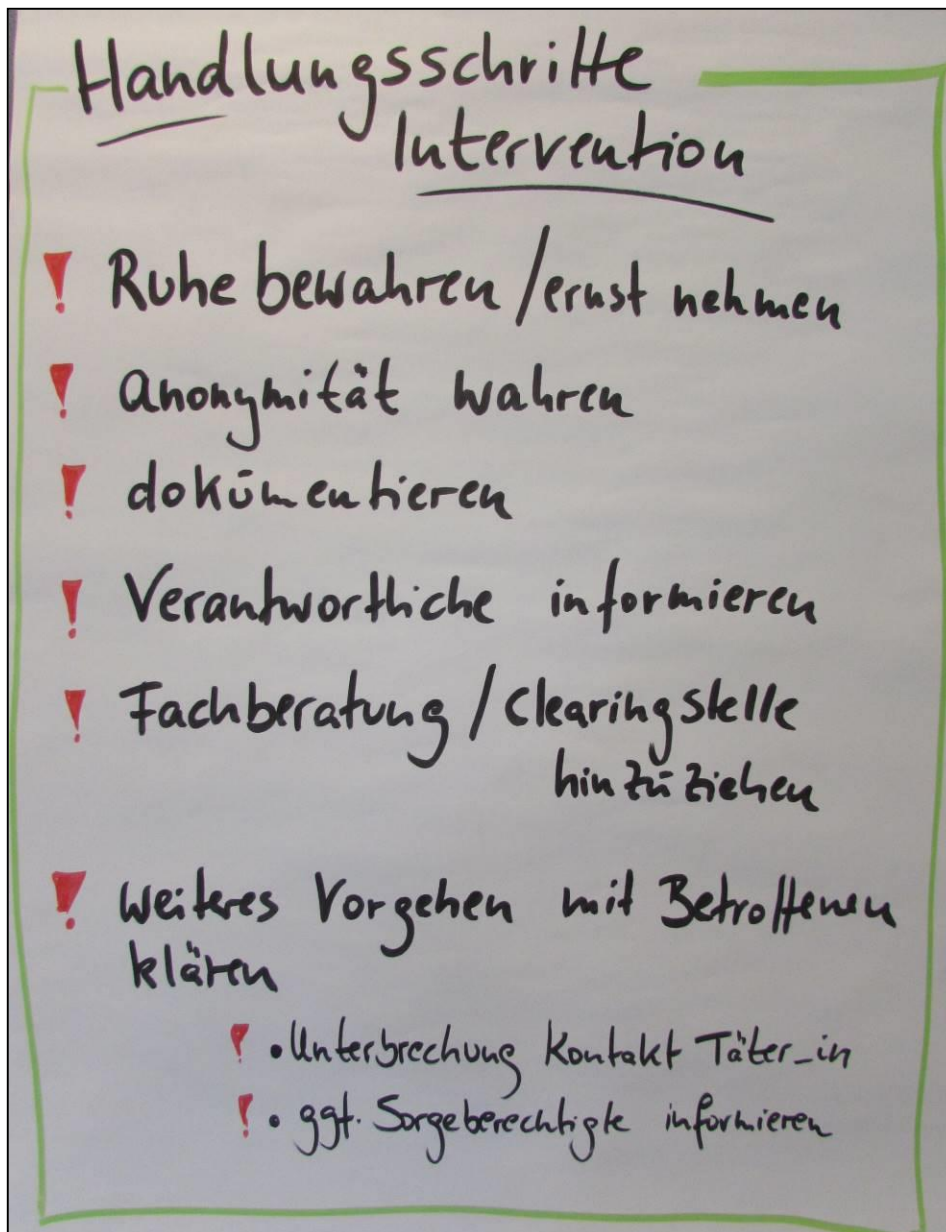 Handlungsschritte
Intervention
! Ruhe bewahren / ernst nehmen
! Anonymität wahren
! dokumentieren
! Verantwortliche informieren
! Fachberatung / Clearingstelle
hinzuziehen
! weiteres Vorgehen mit Betroffenen
klären
! • Unterbrechung Kontakt Täter_in
! • ggf. Sorgeberechtigte informieren